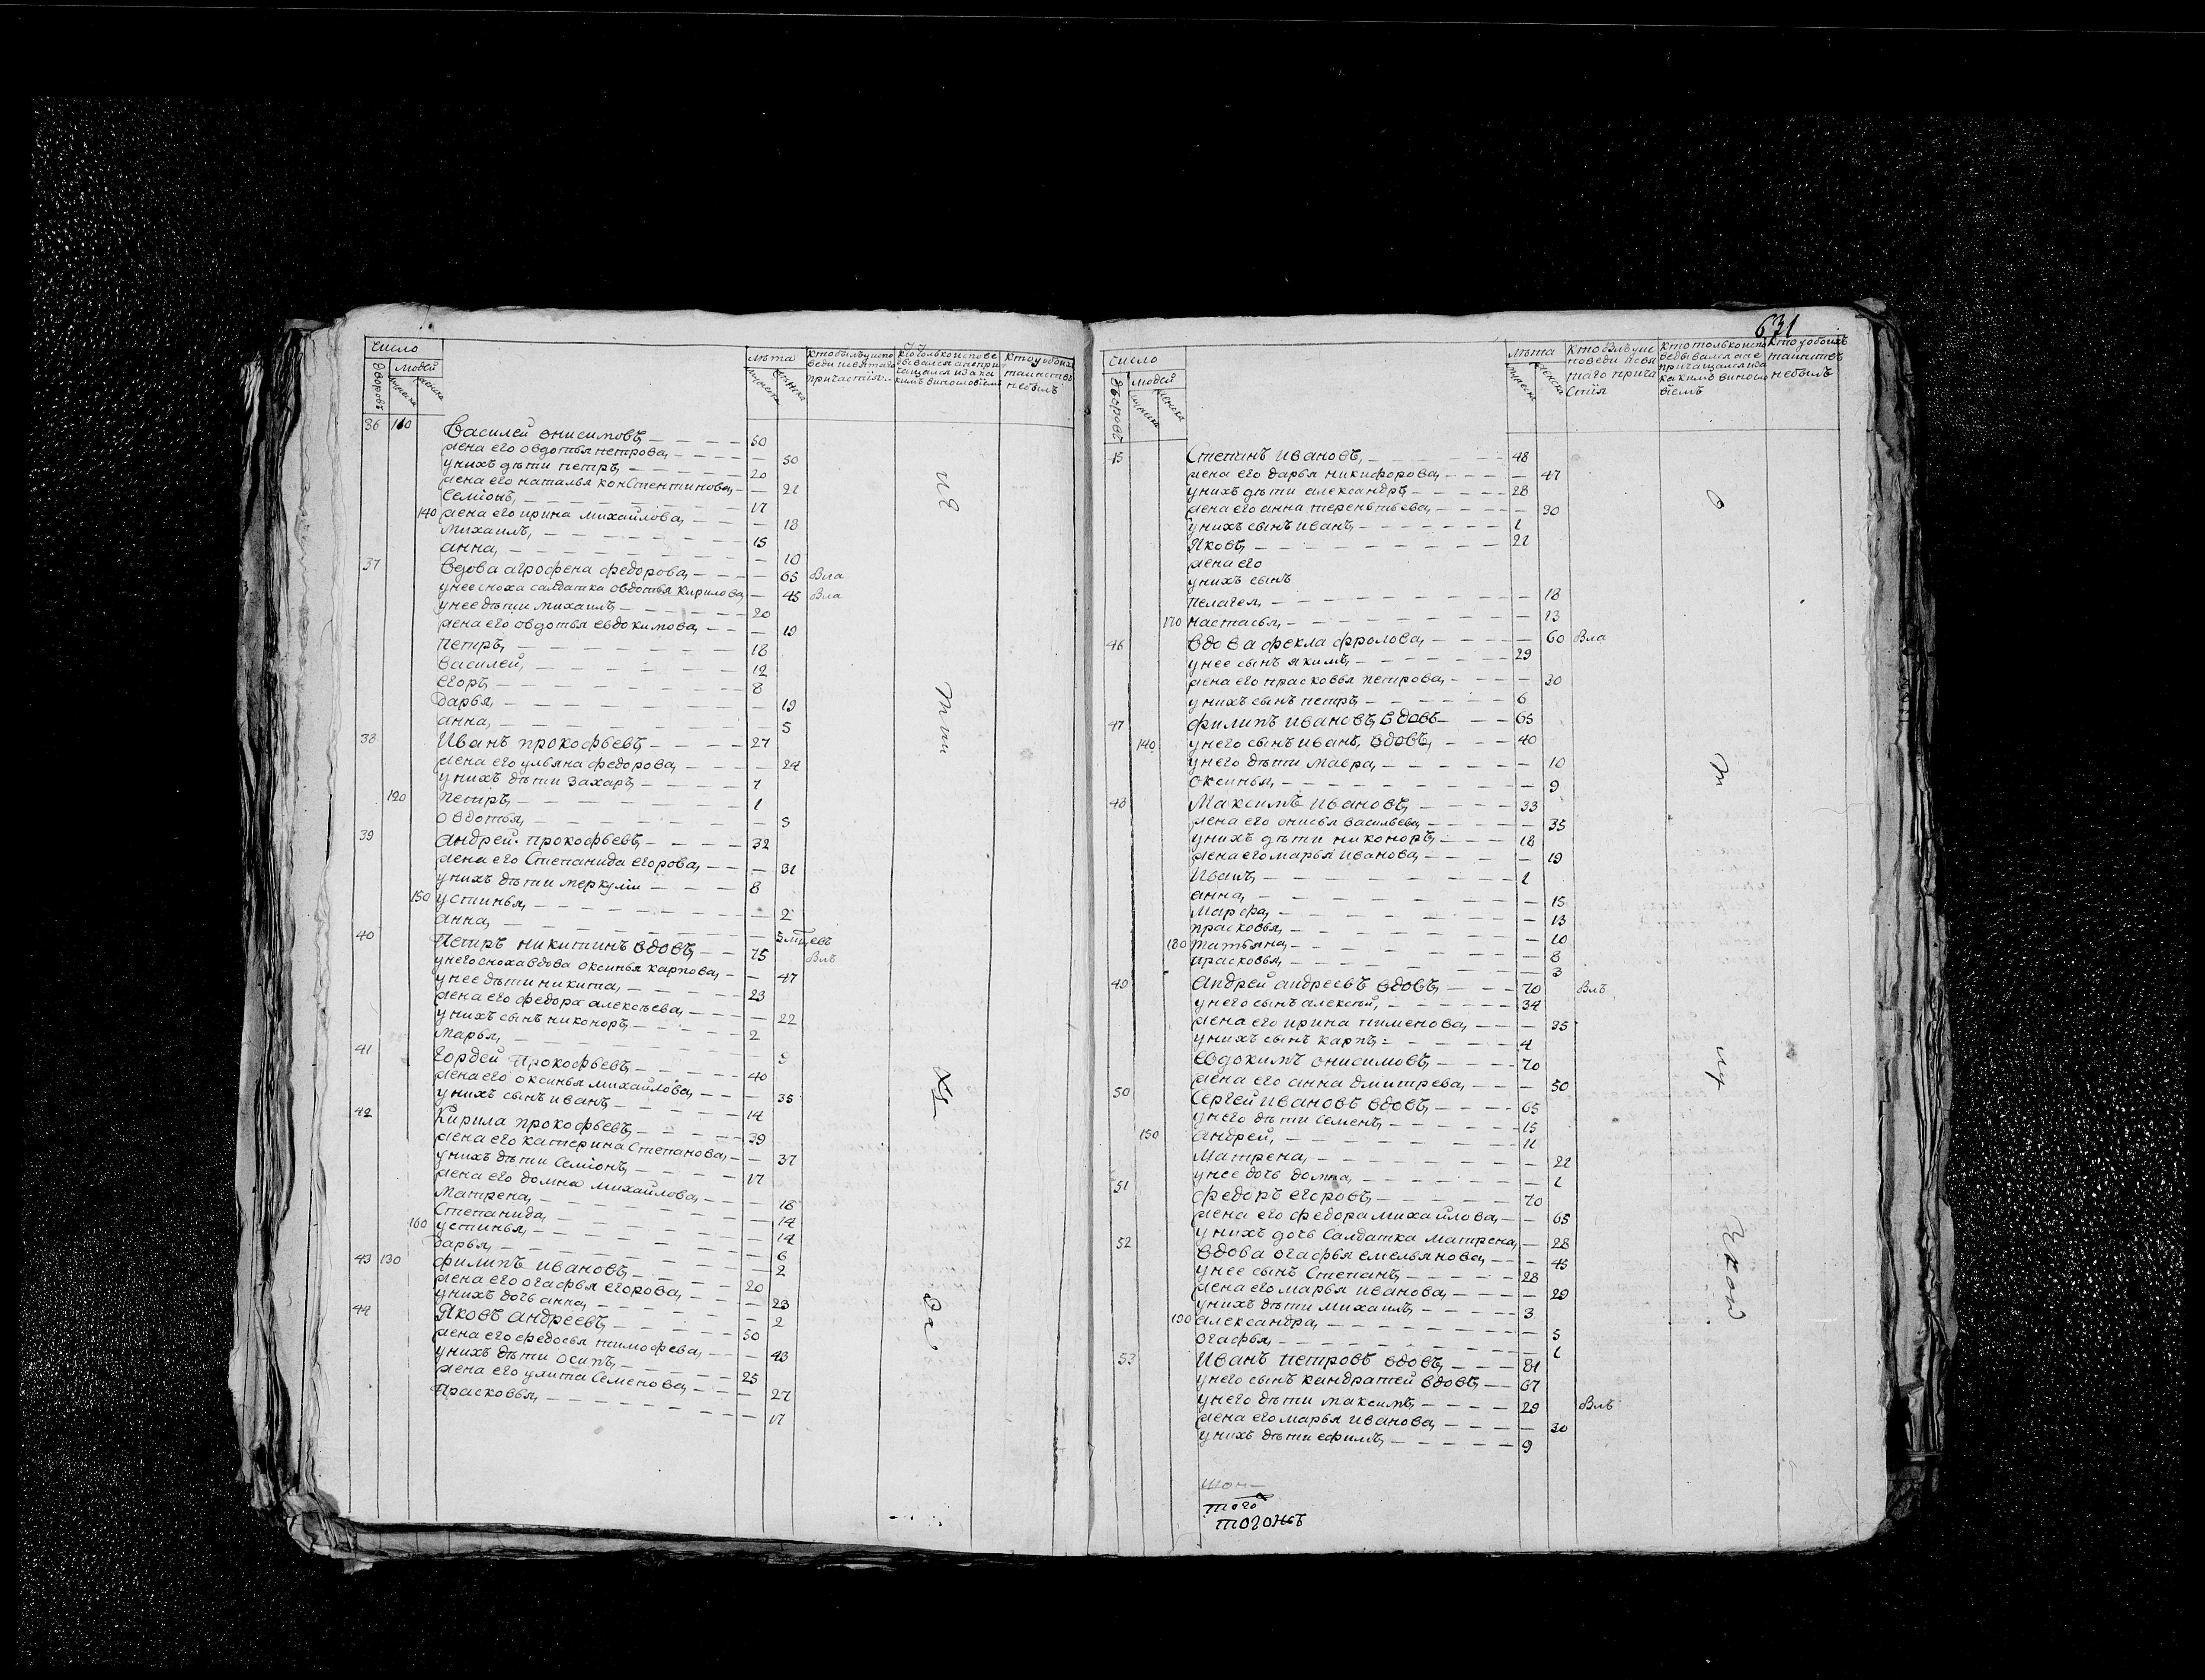 число
дворовъ
людей
мужеска
женска
лѣта
мужеска
женска
кто былъ у испо
веди и святаго
причастія
кто только испове
дывался а не при
чащался и за ка
кимъ винословіемъ
кто у обоихъ
таинствъ
не былъ
36 110 Василей онисимовъ 50
жена его овдотья петрова 50
у нихъ дѣти петръ 20
жена его наталья констентинова 21
семіонъ 17
140 жена его ирина михайлова 18
михаилъ 15
анна 10
37 Вдова агрофена федорова 65 Бла
у нее сноха салдатка овдотья кирилова 45 Бла
у нее дѣти михаилъ 20
жена его овдотья евдокимова 19
петръ 18
василей 12
егоръ 8
дарья 19
анна 5
38 Иванъ прокофьевъ 27
жена его ульяна федорова 24
у нихъ дѣти захаръ 7
120 петръ 1
овдотья 3
39 андрей прокофьевъ 32
жена его степанида егорова 31
у нихъ дѣти меркулїи 8
150 устинья 2
анна 5
40 Петръ никитинъ вдовъ 75 Блъ
у него сноха вдова оксинья карпова 47
у нее дѣти никита 23
жена его федора алексѣева 22
у нихъ сынъ никоноръ 2
марья 9
41 Гордей Прокофьевъ 40
жена его оксинья михайлова 35
у нихъ сынъ иванъ 14
42 Кирила прокофьевъ 39
жена его катерина степанова 37
у нихъ дѣти семіонъ 17
жена его домна михайлова 18
матрена 14
степанида 14
160 устинья 6
дарья 2
43 130 филипъ ивановъ 20
жена его огафья егорова 23
у нихъ дочь анна 2
44 Яковъ андреевъ 50
жена его федосья тимофева 43
у нихъ дѣти осипъ 25
жена его улита семенова 27
Прасковья 17
631
число
дворовъ
людей
мужеска
женска
лѣта
мужеска
женска
кто былъ у ис
поведи и свя
таго прича
стія
кто только исп
ведывался а не
причащался и за
какимъ виносло
віемъ
кто у обоихъ
таинствъ
не былъ
15 Степанъ ивановъ 48
жена его дарья никифорова 47
у нихъ дѣти александръ 28
жена его анна терентьева 30
у нихъ сынъ иванъ 1
Яковъ 21
жена его
у нихъ сынъ
пелагея 18
170 настасья 13
46 вдова фекла фролова 60 Бла
у нее сынъ якимъ 29
жена его прасковья петрова 30
у нихъ сынъ петръ 6
47 филипъ ивановъ вдовъ 65
140 у него сынъ иванъ вдовъ 40
у него дѣти мавра 10
оксинья 9
48 Максимъ ивановъ 33
жена его онисья васильева 35
у нихъ дѣти никоноръ 18
жена его марья иванова 19
Иванъ 1
анна 15
Марфа 13
прасковья 10
180 татьяна 8
прасковья 3
49 андрей андреевъ вдовъ 70 Блъ
у него сынъ алексѣй 34
жена его ирина пименова 35
у нихъ сынъ карпъ 4
Евдокимъ онисимовъ 70
жена его анна дмитрева 50
50 Сергей ивановъ вдовъ 65
у него дѣти семенъ 15
150 андрей 11
матрена 22
у нее дочь домна 1
51 федоръ егоровъ 70
жена его федора михайлова 65
у нихъ дочь салдатка матрена 28
52 вдова огафья емельянова 45
у нее сынъ степанъ 28
жена его марья иванова 29
у нихъ дѣти михаилъ 3
190 александра 5
огафья 1
53 Иванъ петровъ вдовъ 81
у него сынъ кандратей вдовъ 67
у него дѣти максимъ 29 Блъ
жена его марья иванова 30
у нихъ дѣти ефимъ 9
того
тогожъ